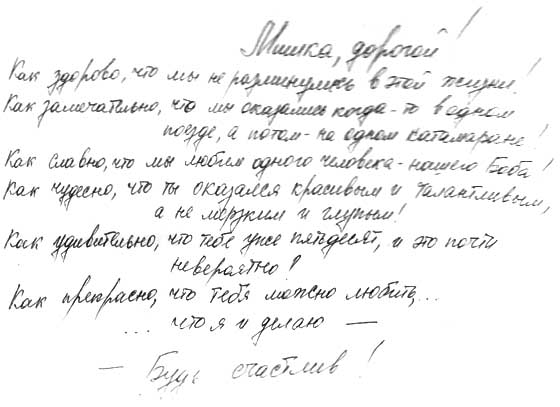 Мишка, дорогой!
Как здорово, что мы не разминулись в этой жизни!
Как замечательно, что мы оказались когда-то в одном
поезде, а потом - на одном катамаране!
Как славно, что мы любим одного человека - нашего Баба!
Как чудесно, что ты оказался красивым и талантливым,
а не мерзким и глупым!
Как удивительно, что тебе уже пятьдесят, и это почти
невероятно?
Как прекрасно, что тебя можно любить,...
... что я и делаю —
— Будь счастлив!